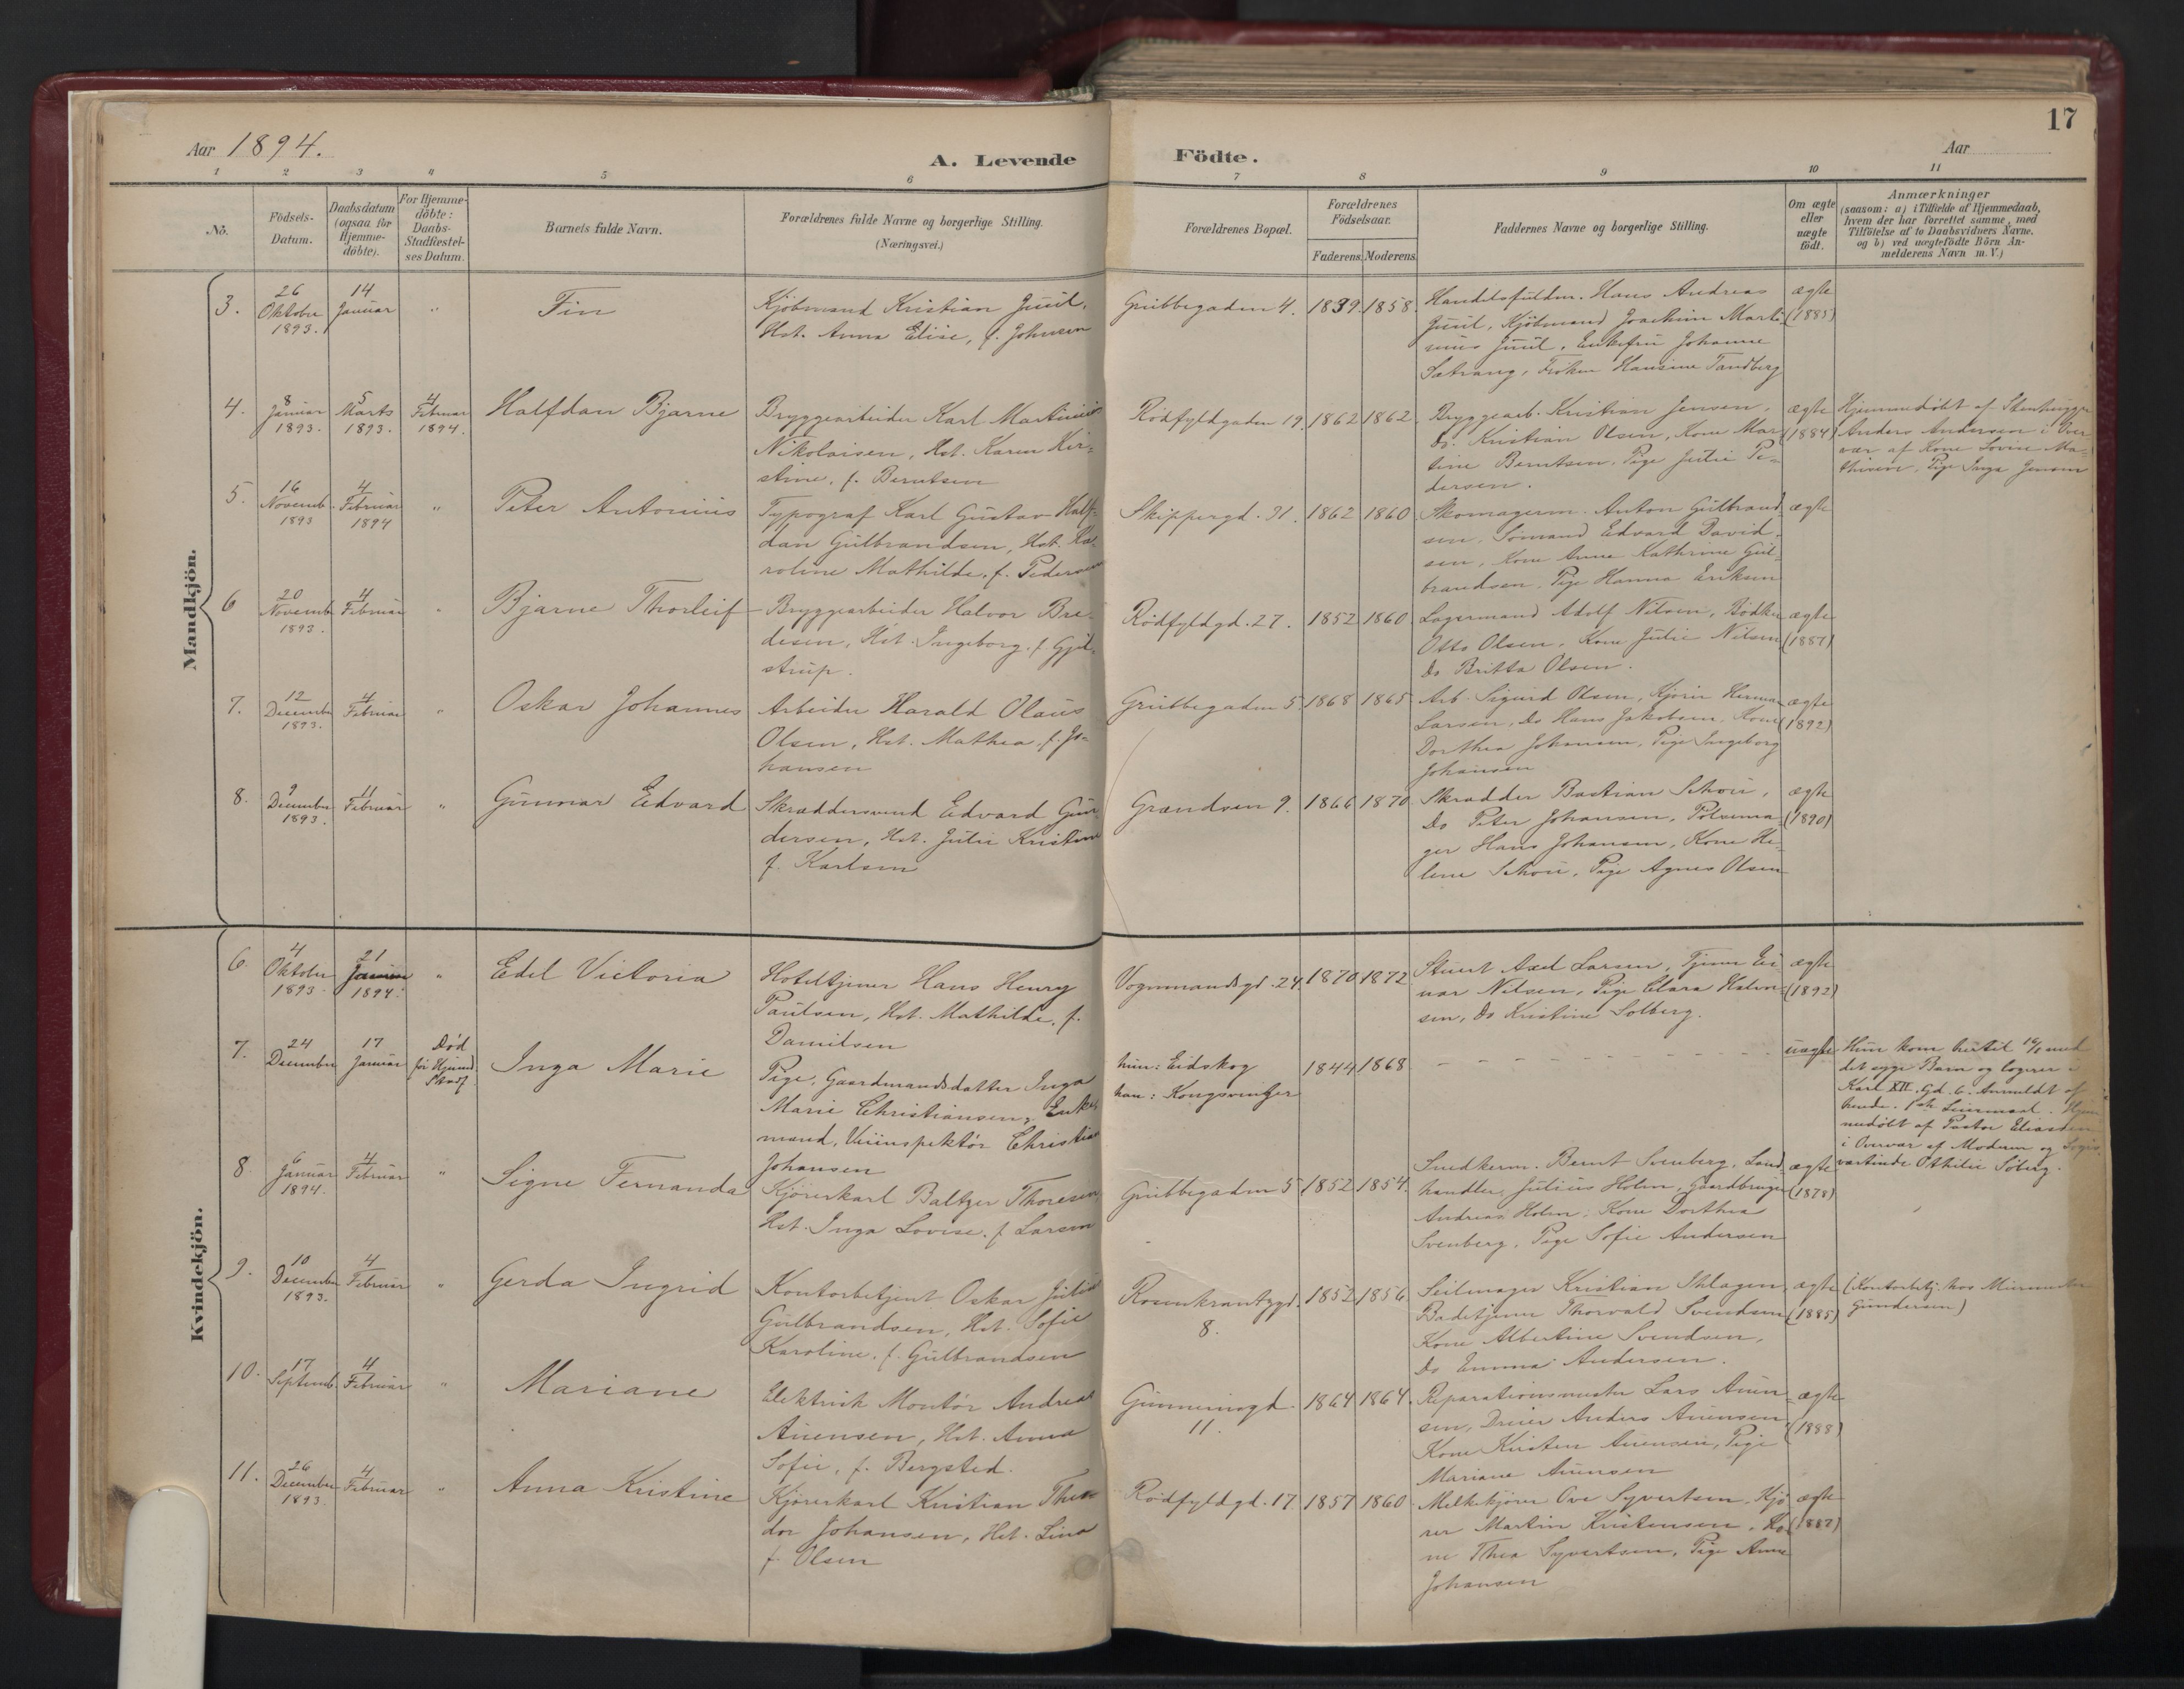 17
Aar 1894.
A. Levende
Födte.
Aar
1 2 3 4 5 6 7 8 9 10 11
No.
Födsels-
Datum.
Daabsdatum
(ogsaa for
Hjemme-
döbte).
For Hjemme-
döbte:
Daabs-
Stadfæstel-
ses Datum.
Barnets fulde Navn.
Forældrenes fulde Navne og borgerlige Stilling.
(Næringsvei.)
Forældrenes Bopæl.
Forældrenes
Födselsaar.
Faderens. Moderens.
Faddernes Navne og borgerlige Stilling.
Om ægte
eller
uægte
födt.
Anmærkninger
(saasom: a) i Tilfælde af Hjemmedaab,
hvem der har forrettet samme, med
Tilföielse af to Daabsvidners Navne.
og b) ved uægtefödte Börn An-
melderens Navn m. V.)
Mandkjön.
3.
26
Oktober
1893.
14
Januar
"
Fin
Kjöbmand Kristian Juul,
Hst. Anna Elise, f. Johnsen
Grubbegaden 4.
1839. 1858.
Handelsfuldm. Hans Andreas
Juul, Kjöbmand Joachim Marti-
nius Juul, Enkefru Johanne
Sætrang, Fröken Hansine Tandberg
ægte
(1885)
4.
8
Januar
1893.
5
Marts
1893.
4
Februar
1894.
Halfdan Bjarne
Bryggearbeider Karl Martinius
Nikolaisen, Hst. Karen Kir-
stine, f. Berntsen
Rödfyldgaden 19.
1862 1862.
Bryggearb. Kristian Jensen,
Do. Kristian Olsen, Kone Mar-
tine Berntsen, Pige Julie Pe-
dersen.
ægte
(1884)
Hjemmedöbt af Stenhugger
Anders Andersen i Over-
vær af Kone Lovise Ma-
thisen, Pige Inga Jensen
5.
16
Novemb.
1893
4
Februar
1894
"
Peter Antonius
Typograf Karl Gustav Half-
dan Gulbrandsen, Hst. Ka-
roline Mathilde, f. Pedersen
Skippergd. 31.
1862 1860
Skomagerm. Anton Gulbrand-
sen, Sömand Edvard David-
sen, Kone Anne Kathrine Gul-
brandsen, Pige Hanna Eriksen
ægte
6
20
Novemb.
1893.
4
Februar
"
Bjarne Thorleif
Bryggearbeider Halvor Bre-
desen, Hst. Ingeborg, f. Gjel-
strup.
Rödfyldgd. 27.
1852 1860
Lagermand Adolf Nilsen, Bödker
Otto Olsen, Kone Julie Nilsen,
Do Britta Olsen.
ægte
(1887)
7.
12
December
1893.
4
Februar
"
Oskar Johannes
Arbeider Harald Olaus
Olsen, Hst. Mathea, f. Jo-
hansen
Grubbegaden 5.
1868 1865
Arb. Sigurd Olsen, Kjörer Herman
Larsen, Do Hans Jakobsen, Kone
Dorthea Johansen, Pige Ingeborg
Johansen
ægte
(1892)
8.
9
December
1893.
11
Februar
"
Gunnar Edvard
Skræddersvend Edvard Gun-
dersen, Hst. Julie Kristine
f. Karlsen
Grændsen 9.
1866 1870
Skrædder Bastian Schou,
Do Peter Johansen, Pölsema-
ger Hans Johansen, Kone He-
lene Schou, Pige Agnes Olsen
ægte
(1890)
Kvindekjön.
6.
4
Oktober
1893.
21
Januar
1894.
"
Edel Victoria
Hoteltjener Hans Henry
Paulsen, Hst. Mathilde, f.
Danielsen
Vognmandsgd. 24.
1870 1872
Stuert Axel Larsen, Tjener Ei-
nar Nilsen, Pige Clara Halvor-
sen, Do Kristine Solberg.
ægte
(1892)
7.
24
December
17
Januar
Död
för Hjemmed.
Stadf.
Inga Marie
Pige, Gaardmandsdatter Inga
Marie Christiansen, Enke-
mand, Veiinspektör Christian
Johansen
hun: Eidskog
han: Kongsvinger
1844 1868
uægte
Hun kom hertil 14/1 med
det syge Barn og logerer i
Karl XII. Gd. 6. Anmeldt af
hende. 1ste Leiermaal. Hjem-
medöbt af Pastor Eliassen
i Overvær af Moderen og Logis-
vertinde Othilie Söberg.
8
6
Januar
1894.
4
Februar
"
Signe Fernanda
Kjörerkarl Baltzer Thoresen
Hst. Inga Lovise, f. Larsen
Grubbegaden 5
1852 1854.
Snedkerm. Bernt Svenberg, Land-
handler Julius Holm, Gaardbruger
Andreas Holm, Kone Dorthea
Svenberg, Pige Sofie Andersen
ægte
(1878)
9.
10
December
1893.
4
Februar
"
Gerda Ingrid
Kontorbetjent Oskar Julius
Gulbrandsen, Hst. Sofie
Karoline, f. Gulbrandsen
Rosenkrantzgd.
8.
1852 1856.
Seilmager Kristian
Badetjener Thorvald Svendsen
Kone Albertine Svendsen,
Do Emma Andersen.
ægte
(1885)
(Kontorbetj. hos Murmester
Gundersen)
10.
17
Septemb.
4
Februar
"
Mariane
Elektrisk Montör Andreas
Auensen, Hst. Anna
Sofie, f. Bergsted.
11.
1864 1864.
Reparationsmester Lars Auen-
sen, Dreier Anders Auensen,
Kone Kirsten Auensen, Pige
Mariane Auensen
ægte
(1888)
11.
26
December
1893.
4
Februar
"
Anna Kristine
Kjörerkarl Kristian Theo-
dor Johansen, Hst. Lina
f. Olsen
Rödfyldgd. 17.
1857 1860.
Melkekjörer Ove Syvertsen, Kjö-
rer Martin Kristensen, Ko-
ne Thea Syvertsen, Pige Anne
Johansen
ægte
(1882)